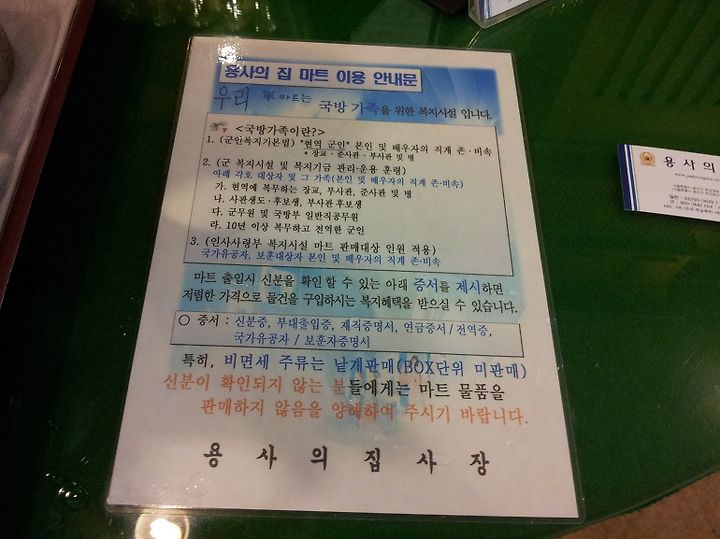 용사의 집 마트 이용 안내문
우리 軍마트는 국방 가족을 위한 복지시설 입니다.
<국방가족이란?>
1. (군인복지기본법) "현역 군인" 본인 및 배우자의 직계 존·비속
* 장교·준사관·부사관 및 병
2. (군 복지시설 및 복지기금 관리·운용 훈령)
아래 각호 대상자 및 그 가족(본인 및 배우자의 직계 존·비속)
가. 현역에 복무하는 장교, 부사관, 준사관 및 병
나. 사관생도·후보생, 부사관 후보생
다. 군무원 및 국방부 일반직공무원
라. 10년 이상 복무하고 전역한 군인
3. (인사사령부 복지시설 마트 판매대상 인원 적용)
국가유공자, 보훈대상자 본인 및 배우자의 직계 존·비속
마트 출입시 신분을 확인 할 수 있는 아래 증서를 제시하면
저렴한 가격으로 물건을 구입하시는 복지혜택을 받으실 수 있습니다.
○ 증서 : 신분증, 부대출입증, 재직증명서, 연금증서/전역증,
국가유공자 / 보훈자증명서
특히, 비면세 주류는 낱개판매(BOX단위 미판매)
신분이 확인되지 않는 분들에게는 마트 물품을
판매하지 않음을 양해하여 주시기 바랍니다.
용 사 의 집 사 장
용 사 의